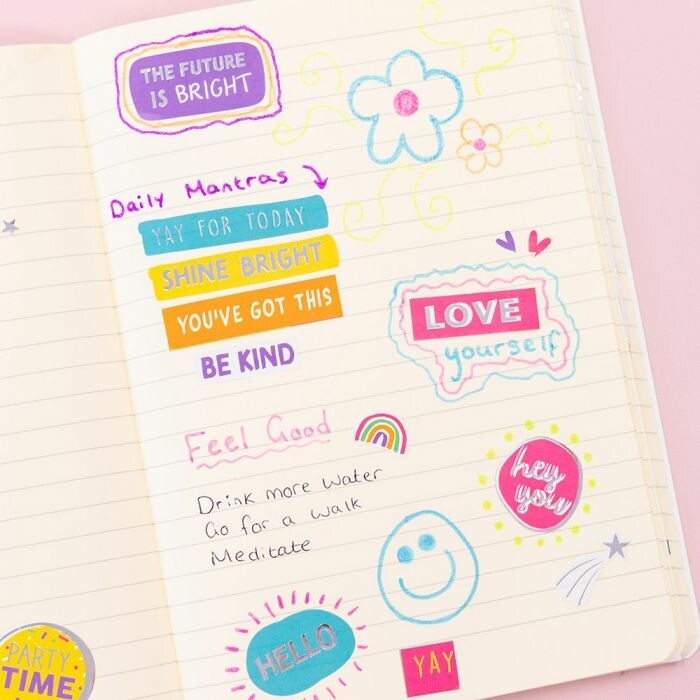 THE FUTURE
IS BRIGHT
Daily Mantras
YAY FOR TODAY
SHINE BRIGHT
YOU'VE GOT THIS
BE KIND
LOVE
yourself
Feel Good
Drink more water
Go for a walk
Meditate
hey
you
HELLO
YAY
PARTY
TIME